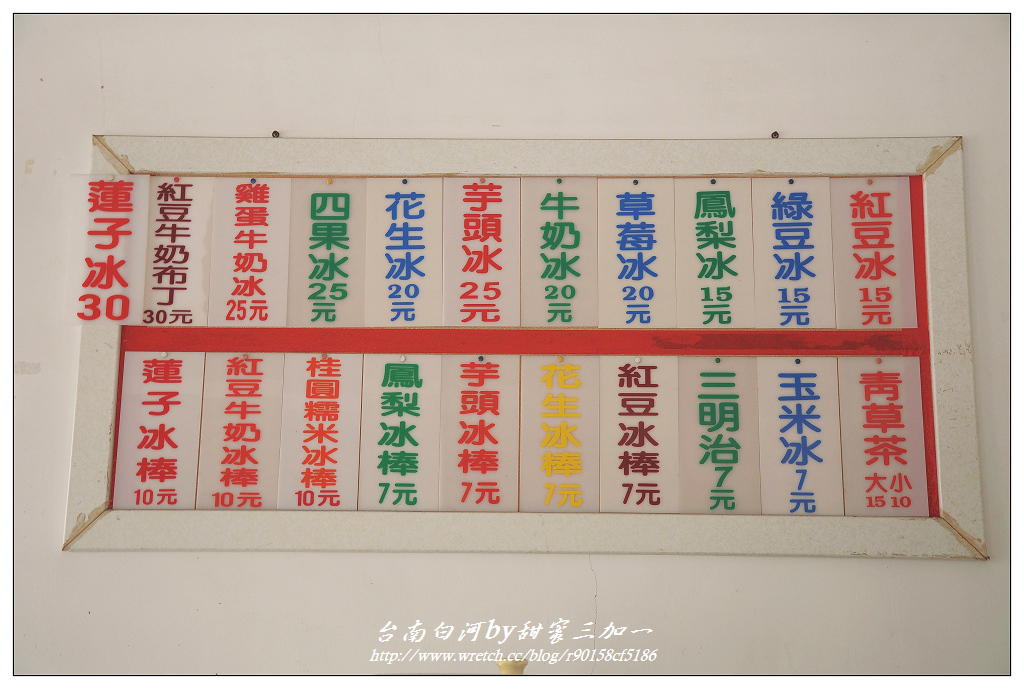 蓮子冰
30
紅豆牛奶布丁
30元
雞蛋牛奶冰
25元
四果冰
25
元
花生冰
20
元
芋頭冰
25
元
牛奶冰
20
元
草莓冰
20
元
鳳梨冰
15
元
綠豆冰
15
元
紅豆冰
15
元
蓮子冰棒
10元
紅豆牛奶冰棒
10元
桂圓糯米冰棒
10元
鳳梨冰棒
7元
芋頭冰棒
7元
花生冰棒
7元
紅豆冰棒
7元
三明治
7
元
玉米冰
7
元
青草茶
大小
15 10
台南白河by甜蜜三加一
http://www.wretch.cc/blog/r90158cf5186